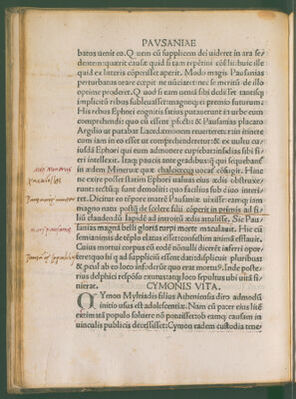 PAVSANIAE
batos uenit eo. Quem cū supplicem dei uideret in ara se
dentem: quærit causæ quid sit tam repētini cōsilii: huic ille
quid ex litteris cōperisset aperit. Modo magis Pausanias
perturbatus orare cœpit ne
proderet. Quod si eam ueniā sibi dedisset tantisq;
implicitū rebus subleuasset: magno ei præmio futurum:
His rebus Ephori cognitis satius putauerunt in urbe eum
comprehendi. quo cū essent ,pfecti: & Pausanias placato
Argilio ut putabat Lacedæmonem reuerteretur: in itinere
cum iam in eo esset ut comprehenderetur: & ex uultu
cuiusdā Ephori qui eum admonere cupiebat insidias sibi fi
eri intellexit. Itaq; paucis ante gradibus q̄ qui sequebant̄
in ædem Mineruæ quæ chalcœcos uocat̄ cōfugit. Hinc
ne exire posset statim Ephori ualuas eius ædis obstruxe
runt: tectūq; sunt demoliti quo facilius sub diuo interi
ret. Dicitur eo tēpore matrē Pausaniæ uixisse: eamq; iam
magno natu postq̄ de scelere filii cōperit in primis ad fi
liū claudendū lapidē ad introitū ædis attulisse. Sic Pau
sanias magnā belli gloriā turpi morte maculauit. Hic cū
semianimis de tēplo elatus esset confestim animā efflauit.
Cuius mortui corpus cū eodē nōnulli dicerēt inferri opor
tere quo ii qui ad suppliciū essent dati: displicuit pluribus:
& pcul ab eo loco infoderūt quo erat mortuꝰ. Inde poste
rius delphici respōso erutus: atq; loco sepultus ubi uitā fi
nierat.
CYMONIS VITA.
CYmon Mylciadis filius Atheniensis diro admodū
initio usus est adolescentiæ. Nam cū pater eius litē
extimatā populo soluere nō potuisset: ob eamq; causam in
uinculis publicis decessisset: Cymon eadem custodia tene